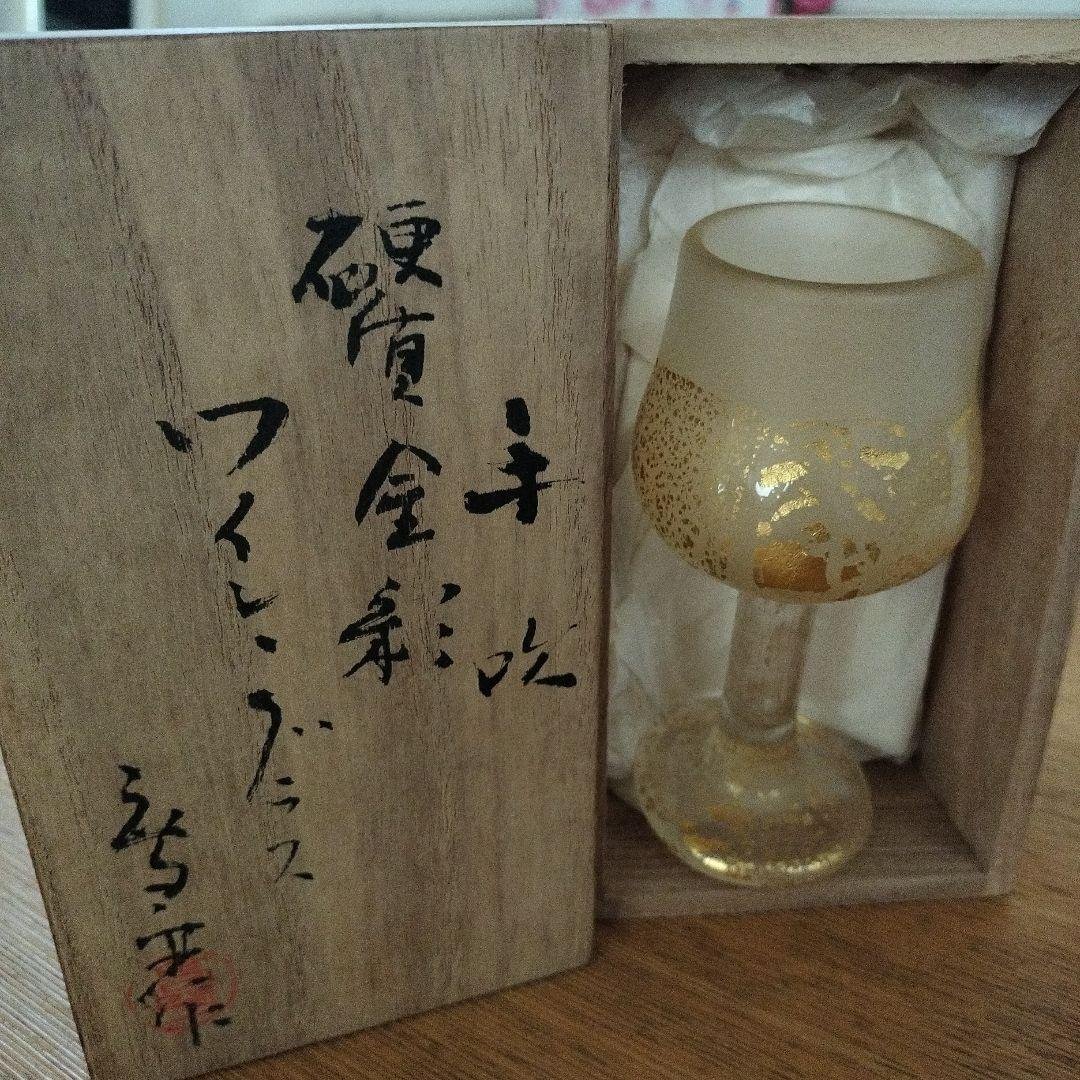 手吹
硬質金彩
ワイングラス